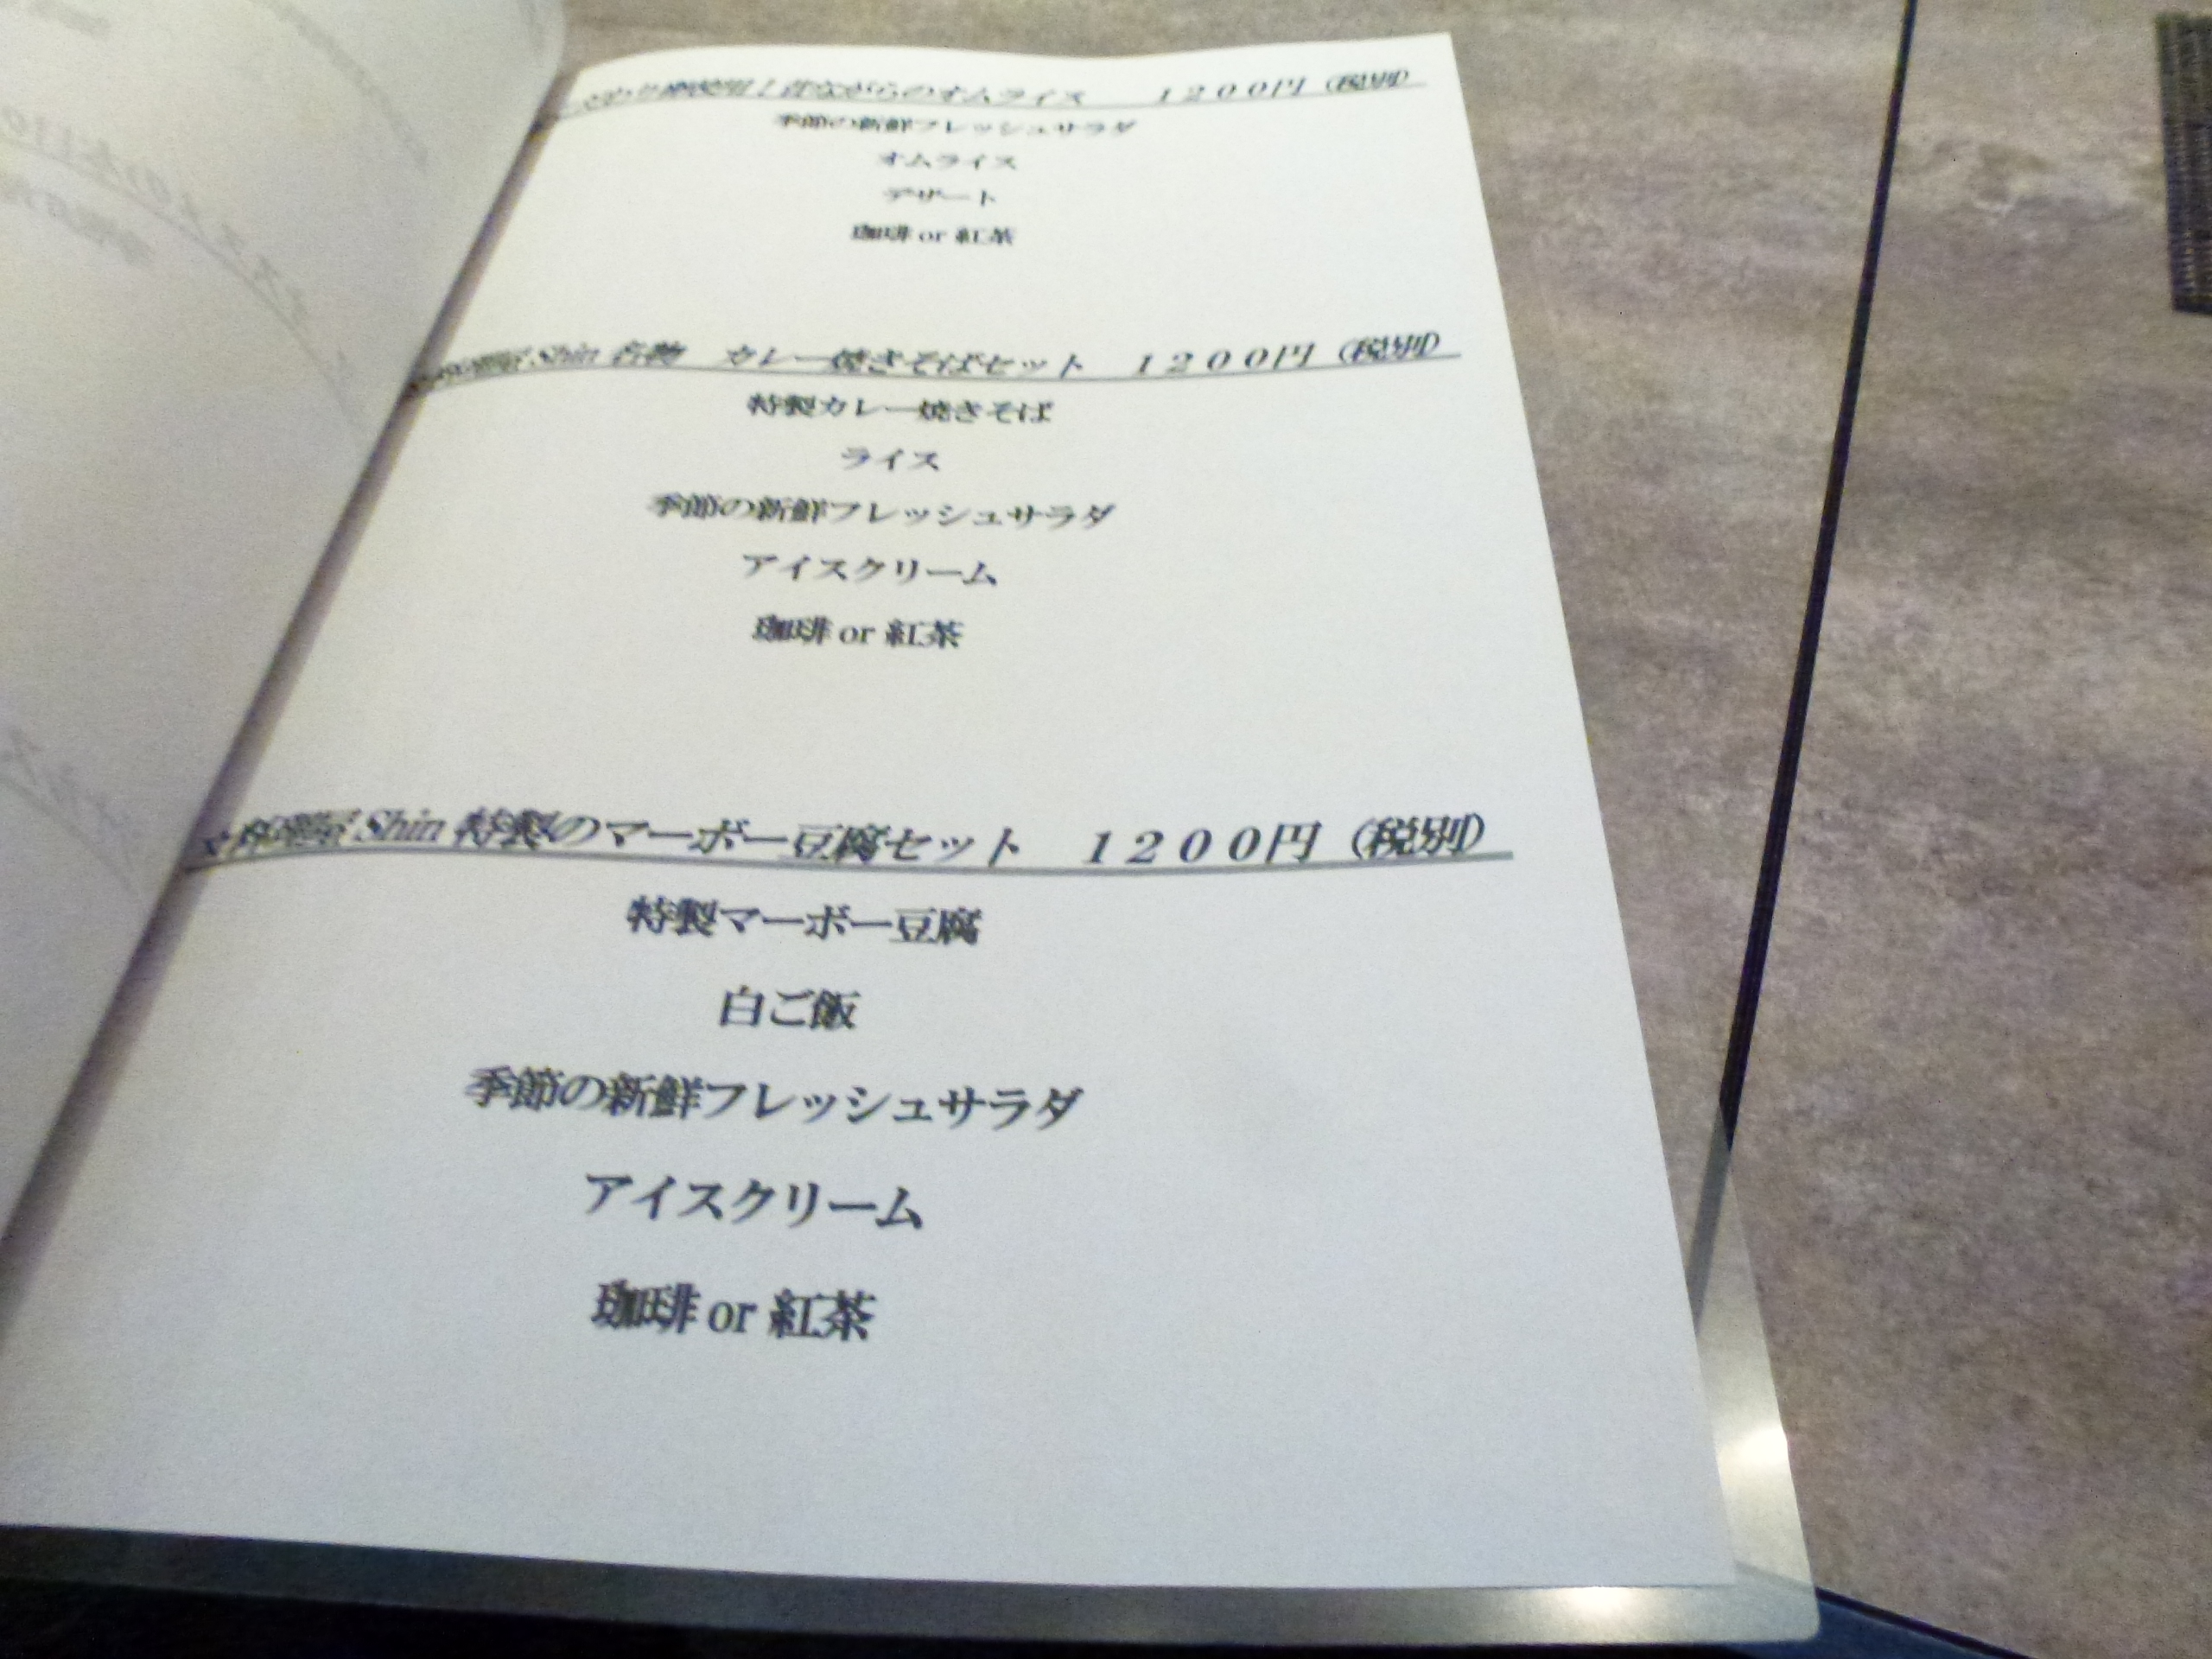 昔ながらのオムライス　１２００円（税別）
季節の新鮮フレッシュサラダ
オムライス
デザート
珈琲 or 紅茶
Shin 名物　カレー焼きそばセット　１２００円（税別）
特製カレー焼きそば
ライス
季節の新鮮フレッシュサラダ
アイスクリーム
珈琲 or 紅茶
Shin 特製のマーボー豆腐セット　１２００円（税別）
特製マーボー豆腐
白ご飯
季節の新鮮フレッシュサラダ
アイスクリーム
珈琲 or 紅茶